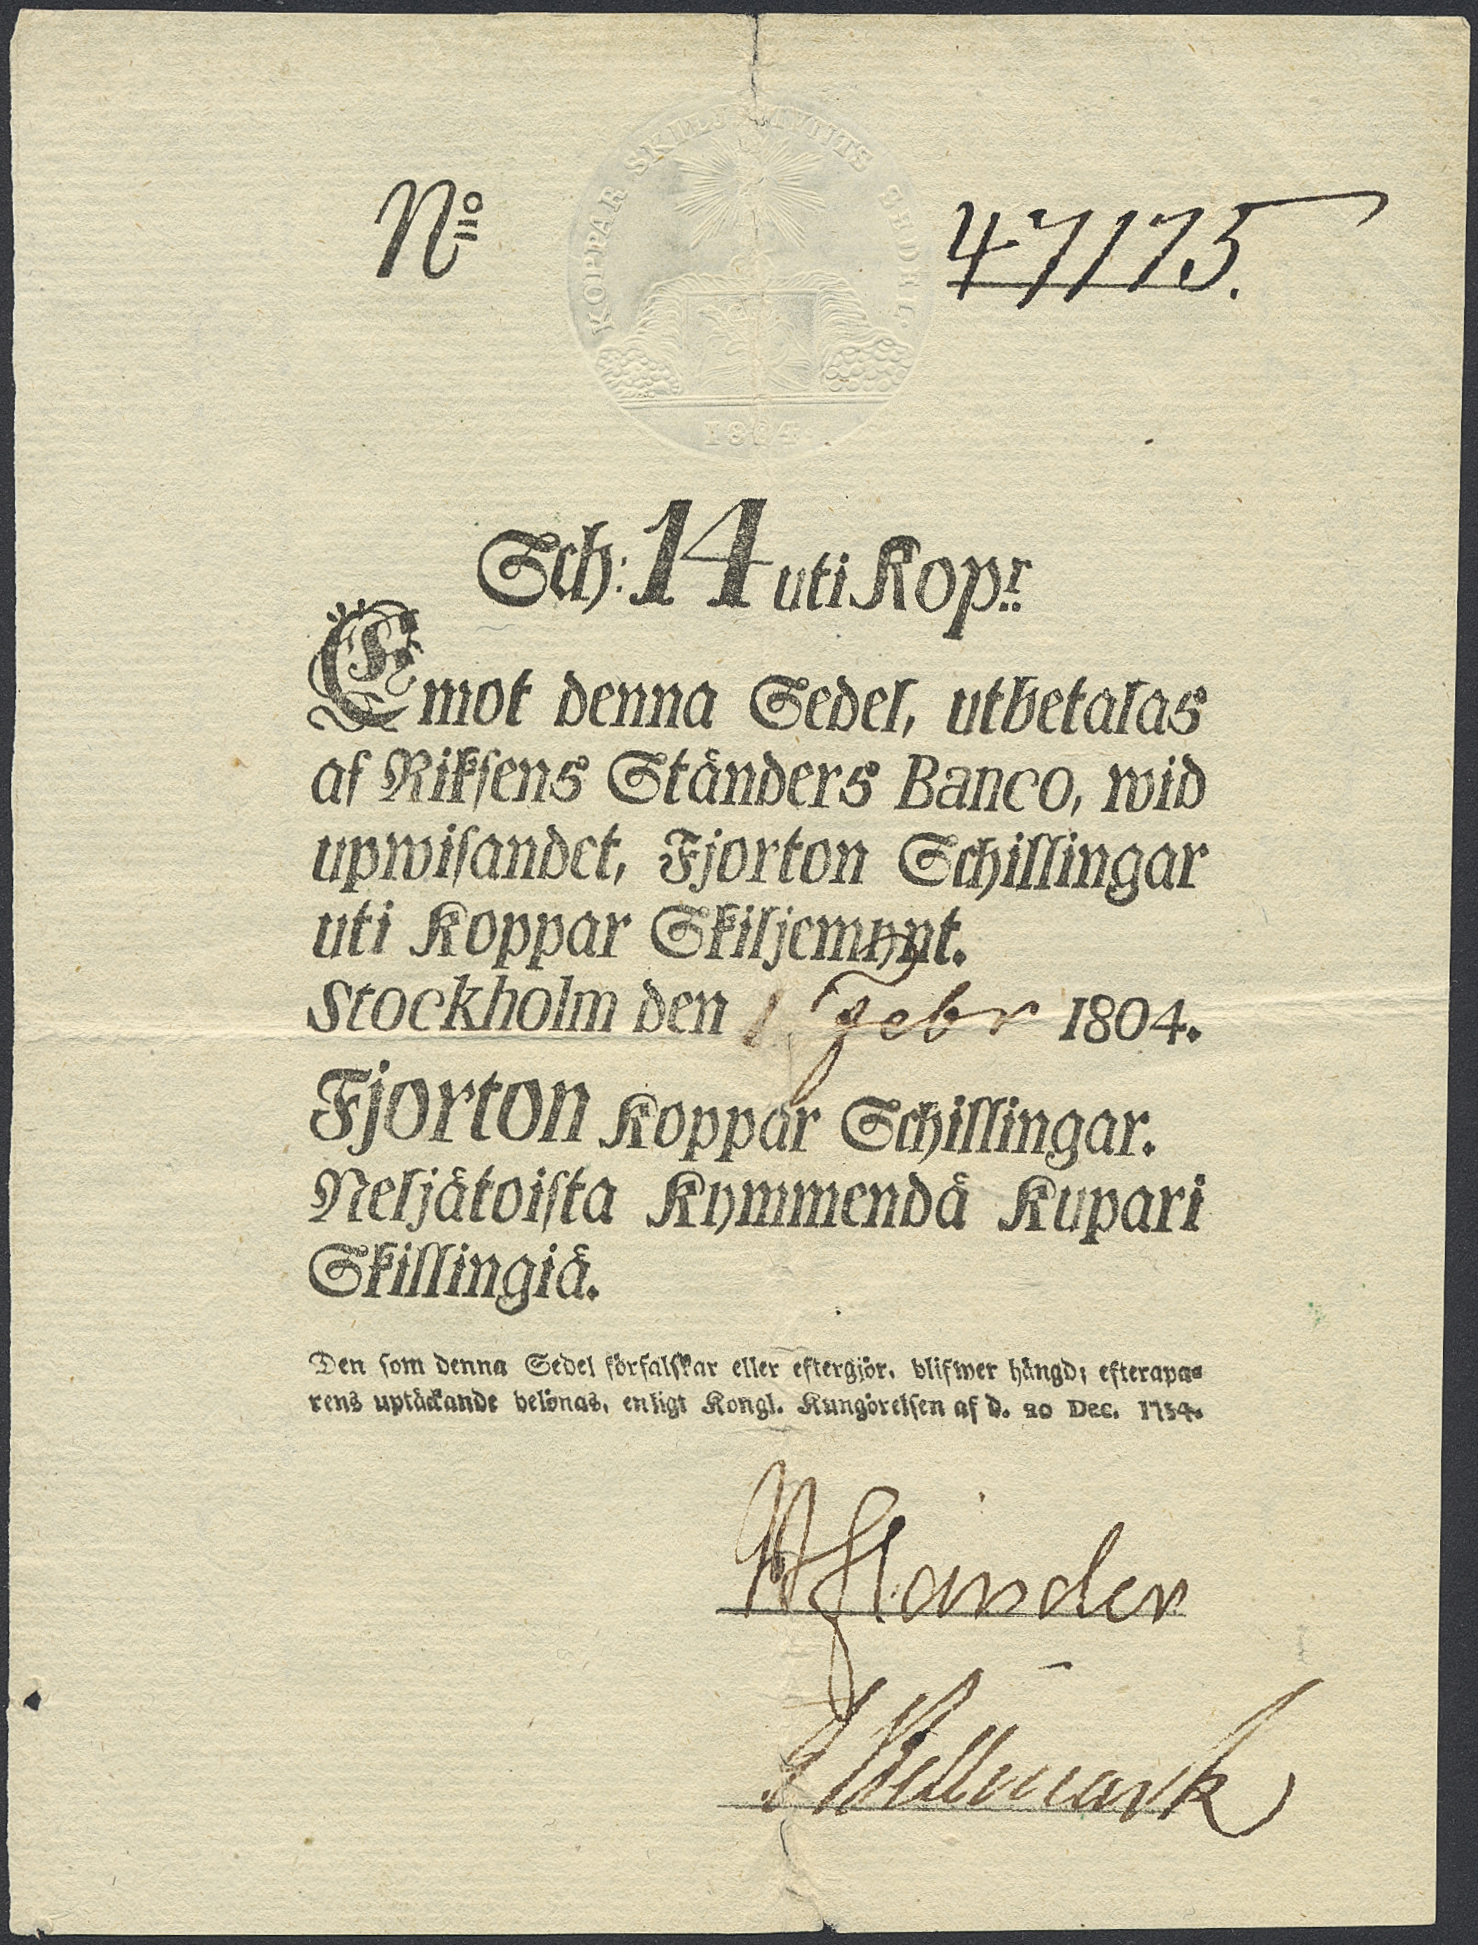 KOPPAR SKILLJ MYNTS SEDEL.
1804.
No 47175.
Sch: 14 uti Kopr
Emot denna Sedel, utbetalas
af Rikſens Ständers Banco, wid
upwiſandet, Fjorton Schillingar
uti Koppar Skiljemynt.
Stockholm den 1 Febr 1804.
Fjorton Koppar Schillingar.
Neljätoiſta Kymmendä Kupari
Skillingiä.
Den ſom denna Sedel förfalſkar eller eftergjör, blifwer hängd; efterapa=
rens uptäckande belönas, enligt Kongl. Kungörelſen af d. 20 Dec. 1754.